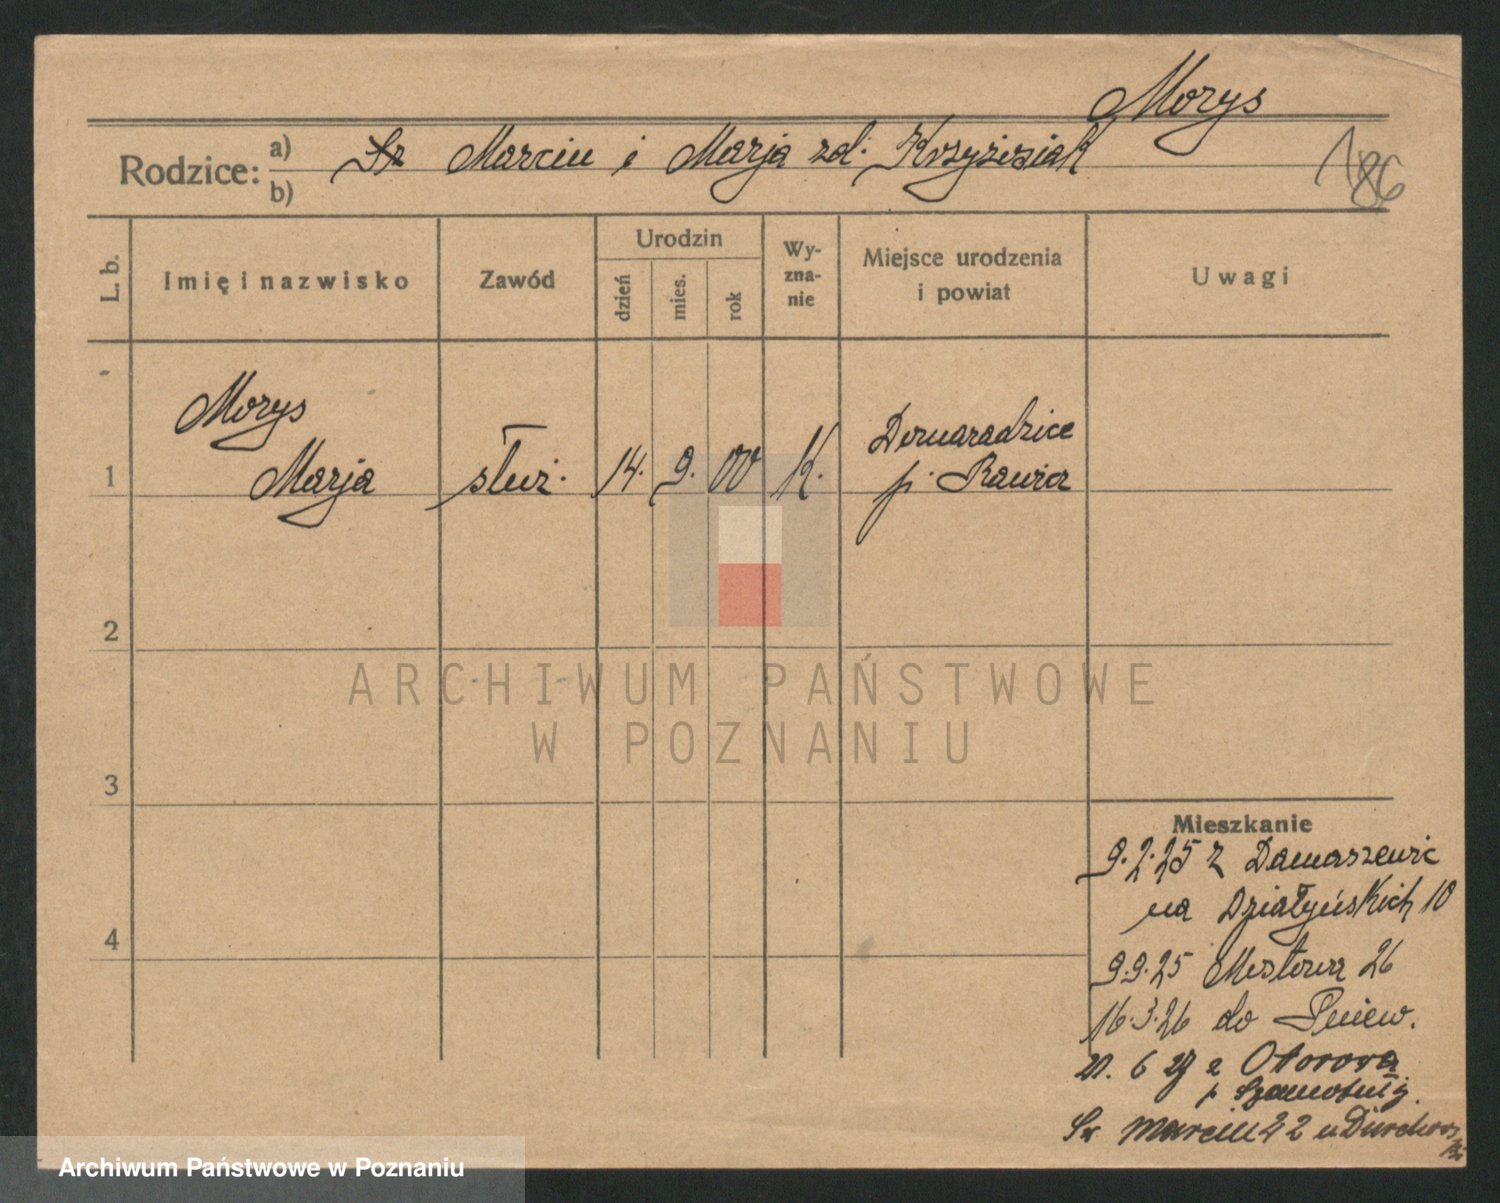 Morys
Rodzice: a) Marcin i Marja zd. Krzyżosiak
b)
186
L. b.
Imię i nazwisko
Zawód
Urodzin
dzień
mies.
rok
Wy-
zna-
nie
Miejsce urodzenia
i powiat
Uwagi
Morys
Marja
1
służ.
14. 9. 00
K.
Domaradzice
p. Rawicz
2
3
4
Mieszkanie
9.2.25 z Damaszewic
na Działyńskich 10
9.9.25 Mostowa 26
16.3.26 do Pniew.
21. 6 27 z Otorowa
p Szamotuły.
Św Marcin 42 u
ARCHIWUM PAŃSTWOWE
W POZNANIU
Archiwum Państwowe w Poznaniu